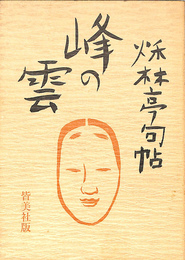 烁林亭句帖
峰の雲
皆美社版